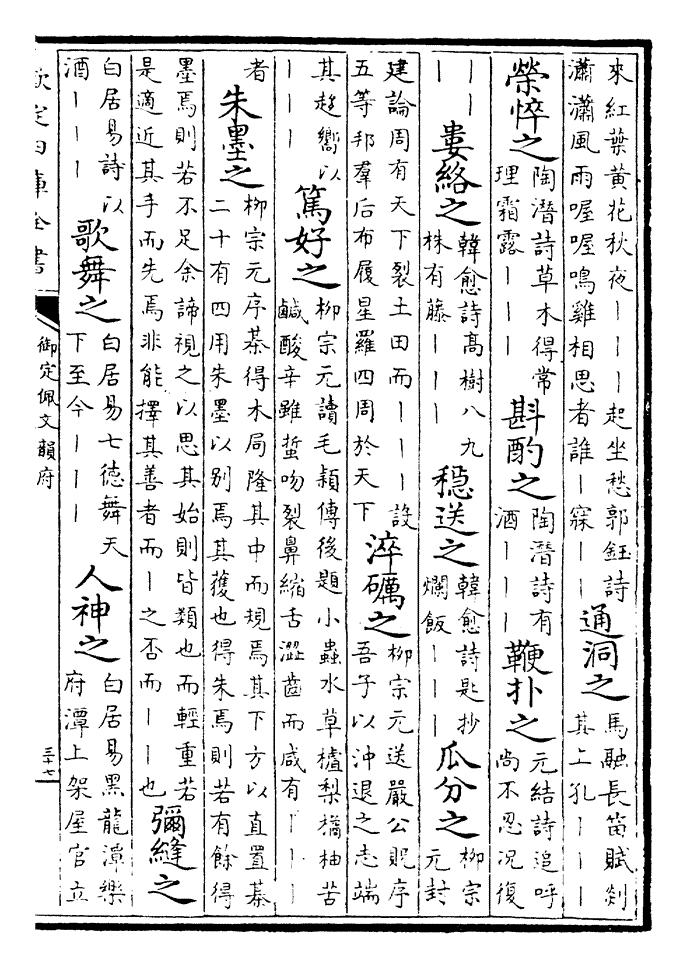 來紅葉黃花秋夜｜｜｜起坐愁郭鈺詩
瀟瀟風雨喔喔鳴雞相思者誰｜寐｜｜
通洞之
馬融長笛賦剡
其上孔｜｜｜
榮悴之
陶潛詩草木得常
理霜露｜｜｜
斟酌之
陶潛詩有
酒｜｜｜
鞭扑之
元結詩追呼
尚不忍况復
｜｜
｜
婁絡之
韓愈詩高樹八九
株有藤｜｜｜
穏送之
韓愈詩匙抄
爛飯｜｜｜
瓜分之
柳宗
元封
建論周有天下裂土田而｜｜｜設
五等邦羣后布履星羅四周於天下
淬礪之
柳宗元送嚴公貺序
吾子以沖退之志端
其趨嚮以
｜｜｜
篤好之
柳宗元讀毛穎傳後題小蟲水草樝梨橘柚苦
鹹酸辛雖蜇吻裂鼻縮舌澀齒而咸有｜｜｜
者
朱墨之
柳宗元序棊得木局隆其中而規焉其下方以直置棊
二十有四用朱墨以别焉其獲也得朱焉則若有餘得
墨焉則若不足余諦視之以思其始則皆類也而輕重若
是適近其手而先焉非能擇其善者而｜之否而｜｜也
彌縫之
白居易詩以
酒｜｜｜
歌舞之
白居易七德舞天
下至今｜｜｜
人神之
白居易黑龍潭樂
府潭上架屋官立
欽定四庫全書
御定佩文韻府
三十七